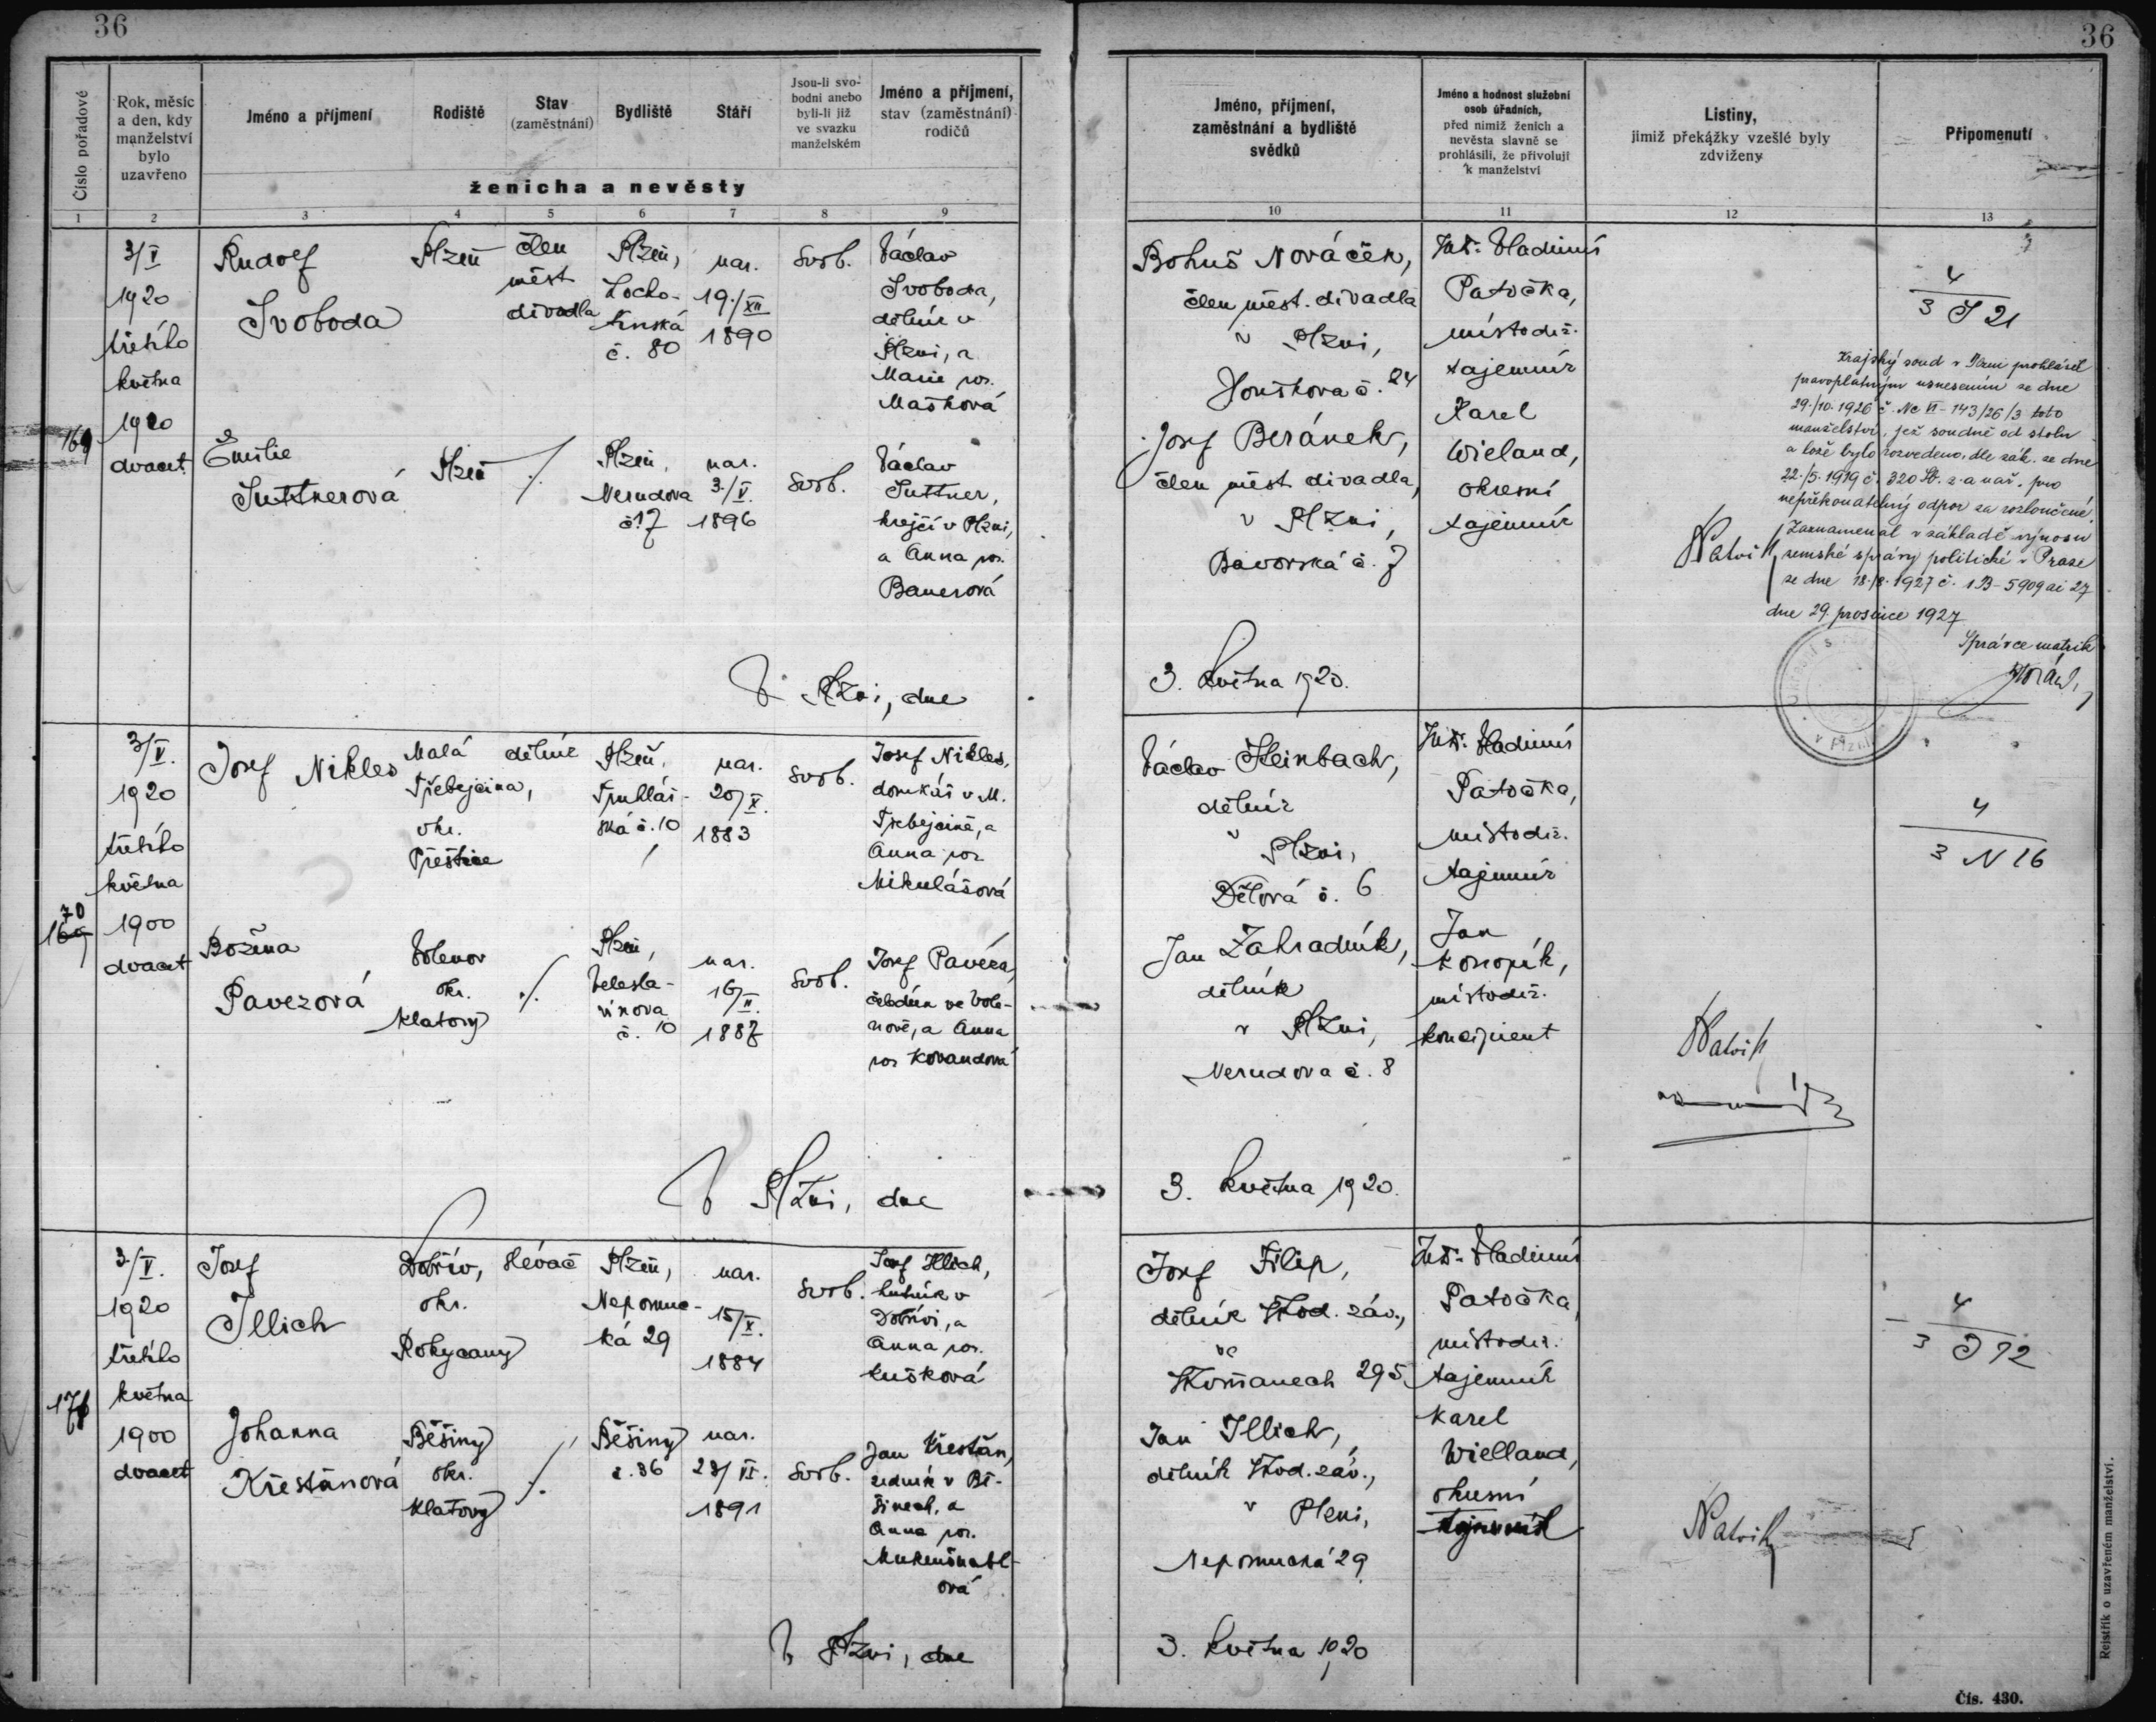 36
36
Číslo pořadové
Rok, měsíc
a den, kdy
manželství
bylo
uzavřeno
Jméno a příjmení
Rodiště
Stav
(zaměstnání)
Bydliště
Stáří
Jsou-li svo-
bodni anebo
byli-li již
ve svazku
manželském
Jméno a příjmení,
stav (zaměstnání)
rodičů
ženicha a nevěsty
Jméno, příjmení,
zaměstnání a bydliště
svědků
Jméno a hodnost služební
osob úřadních,
před nimiž ženich a
nevěsta slavně se
prohlásili, že přivolují
k manželství
Listiny,
jimiž překážky vzešlé byly
zdviženy
Připomenutí
1 2 3 4 5 6 7 8 9
10 11 12 13
169
3/V
1920
třetího
května
1920
dvacet
Rudolf
Svoboda
Plzeň
člen
měst
divadla
Plzeň,
Locho-
tínská
č. 80
nar.
19./XII
1890
Svob.
Václav
Svoboda,
dělník v
Plzni, a
Marie roz.
Mašková
Emilie
Suttnerová
Plzeň
./.
Plzeň,
Nerudova
č 17
nar.
3./V.
1896
Svob.
Václav
Suttner,
krejčí v Plzni,
a Anna roz.
Bauerová
V Plzni, dne
Bohuš Nováček,
člen měst. divadla
v Plzni,
Houškova č. 24
Josef Beránek,
člen měst divadla,
v Plzni,
Bavorská č. 7
3. května 1920.
Vladimír
Patočka,
místodrž.
tajemník
Karel
Wieland,
okresní
tajemník
4
3 S 21
Krajský soud v Plzni prohlásil
pravoplatným usnesením ze dne
29./10. 1926 č. Nc VI - 143/26/3 toto
manželství, jež soudně od stolu
a lože bylo rozvedeno, dle zák. ze dne
22./5. 1919 č. 320 Sb. z. a nař. pro
nepřekonatelný odpor za rozloučené.
Zaznamenal v základě výnosu
zemské správy politické v Praze
ze dne 18./8. 1927 č. 1B - 5909 ai 27
dne 29. prosince 1927
Správce matrik
v Plzni
70
169
3/V.
1920
třetího
května
1900
dvacet
Josef Nikles
Malá
Třebejcina,
okr.
Přeštice
dělník
Plzeň,
Truhlář-
ská č. 10
nar.
20/X.
1883
svob.
Josef Nikles,
domkář v M.
Třebejcině, a
Anna roz
Mikulášová
Božena
Pavezová
Volenov
okr.
Klatovy
./.
Plzeň,
Velesla-
vínova
č. 10
nar.
16/II.
1887
Svob.
Josef Paveza,
čeledín ve Vole-
nově, a Anna
roz Kovandová
V Plzni, dne
Václav Steinbach,
dělník
v Plzni,
Dělová č. 6
Jan Zahradník,
dělník
v Plzni,
Nerudova č. 8
3. května 1920.
Vladimír
Patočka,
místodrž.
tajemník
Jan
Konopík,
místodrž.
koncipient
4
3 N 16
171
3./V.
1920
třetího
května
1900
dvacet
Josef
Illich
Dobřív,
okr.
Rokycany
slévač
Plzeň,
Nepomuc-
ká 29
nar.
15/X.
1884
svob.
Josef Illich,
hutník v
Dobřívi, a
Anna roz.
Kušková
Johanna
Křesťanová
Běšiny
okr.
Klatovy
./.
Běšiny
č. 36
nar.
23/VI.
1891
Svob.
Jan Křesťan,
zedník v Bě-
šinech, a
Anna roz.
V Plzni, dne
Josef Filip,
dělník Škod. záv.,
ve
Skvrňanech 295
Jan Illich,
dělník Škod. záv.,
v Plzni,
Nepomucká 29
3. května 1920
Vladimír
Patočka,
místodrž.
tajemník
Karel
Wielland,
okresní
tajemník
4
3 I 12
Rejstřík o uzavřeném manželství.
Čís. 430.